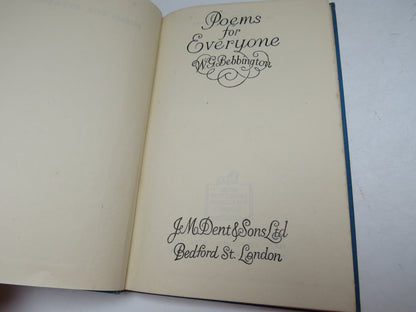 Poems
for
Everyone
W.G.Bebbington
J.M.Dent & Sons Ltd
Bedford St. London